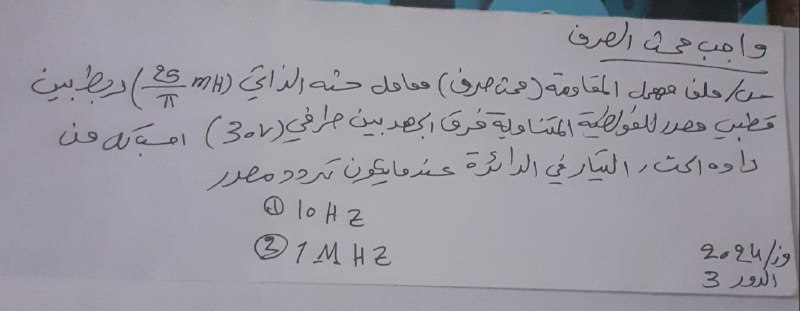 واجب محث الصرف
س/ ملف مهمل المقاومة (محث صرف) معامل حثه الذاتي (25/π mH) ربط بين
قطبي مصدر للفولطية المتناوبة فرق الجهد بين طرفي (30V) احسب كل من
رادة الحث، التيار في الدائرة عندما يكون تردد مصدر
① 10 HZ
② 1 M HZ
وز/2024
الدور 3